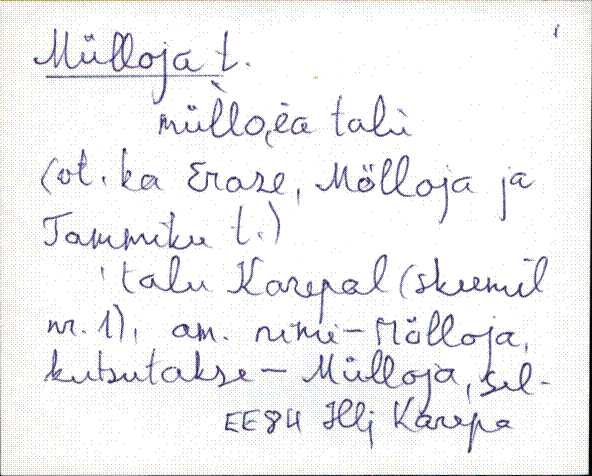 Mülloja t.
mùllo͔ɛ̈a talu
(vt. ka Erase, Mölloja ja
Tammiku t.)
talu Karepal (skeemil
nr. 1), am. nimi - Mölloja,
kutsutakse - Mülloja, sel-
EE84 Hlj Karepa